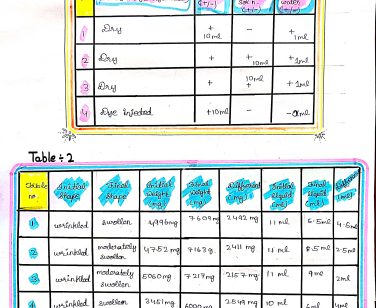 (+/-) (+/-) (+/-)
1 Dry + 10ml - + 1ml
2 Dry - + 10ml + 1ml
3 Dry 10ml + + 1ml
4 Dye injected +10ml -
Table ÷ 2
no. Initial shape Final shape Initial weight (mg) Final weight (mg) Different (mg) Initial liquid (ml) Final liquid (ml)
1 wrinkled swollen 7609mg 2492 mg 11 ml 6.5ml 4.5ml
2 wrinkled moderately swollen 4752 mg 7163g 2411 mg 11 ml 8.5ml 2.5ml
3 wrinkled moderately swollen 5060mg 7217mg 2157mg 11 ml 9ml 2ml
wrinkled swollen 3451mg 2549mg 10 ml